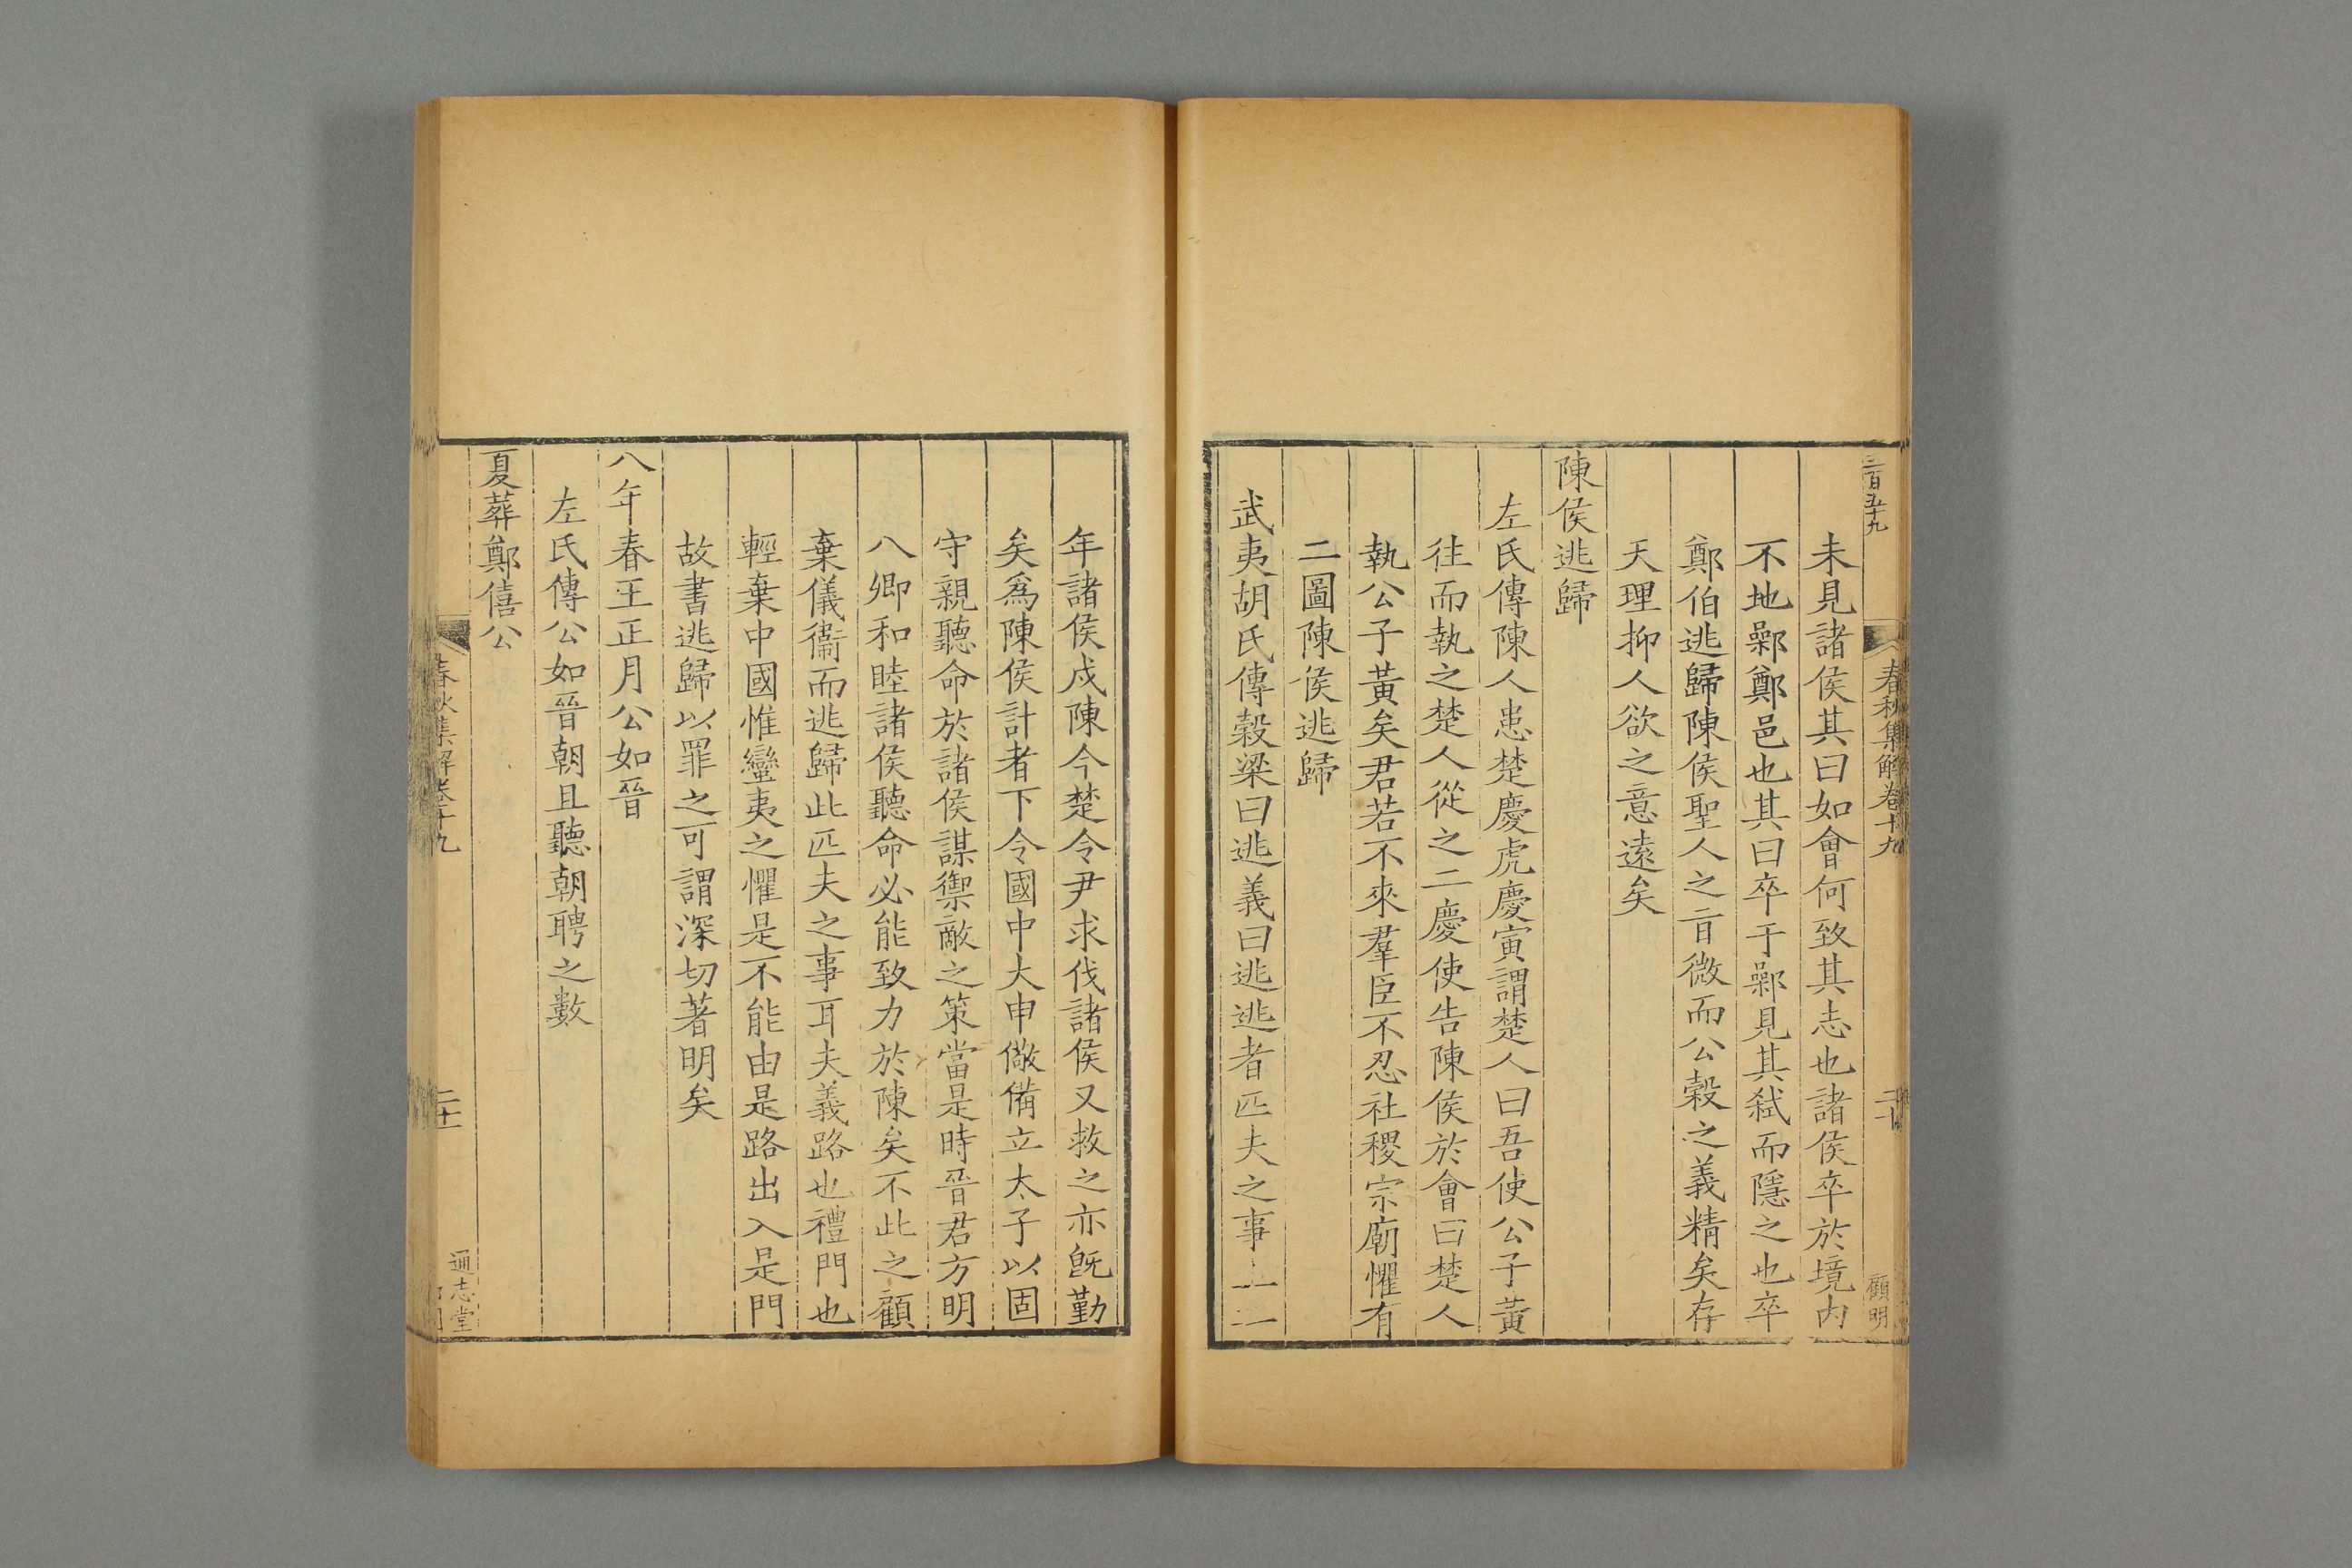 二百五十九
春秋集解卷十九
二十
顧明
未見諸侯其曰如會何致其志也諸侯卒於境内
不地鄵鄭邑也其曰卒于鄵見其弑而隱之也卒
鄭伯逃歸陳侯聖人之㫖微而公榖之義精矣存
天理抑人欲之意逺矣
陳侯逃歸
左氏傳陳人患楚慶虎慶寅謂楚人曰吾使公子黃
往而執之楚人從之二慶使告陳侯於會曰楚人
執公子黃矣君若不來羣臣不忍社稷宗廟懼有
二圖陳侯逃歸
武夷胡氏傳榖梁曰逃義曰逃逃者匹夫之事上二
年諸侯戍陳今楚令尹求伐諸侯又救之亦旣勤
矣爲陳侯計者下令國中大申儆備立太子以固
守親聽命於諸侯謀禦敵之策當是時晉君方明
八卿和睦諸侯聽命必能致力於陳矣不此之顧
棄儀衞而逃歸此匹夫之事耳夫義路也禮門也
輕棄中國惟蠻夷之懼是不能由是路出入是門
故書逃歸以罪之可謂深切著明矣
八年春王正月公如晉
左氏傳公如晉朝且聽朝聘之數
夏葬鄭僖公
春秋集解卷十九
二十一
通志堂